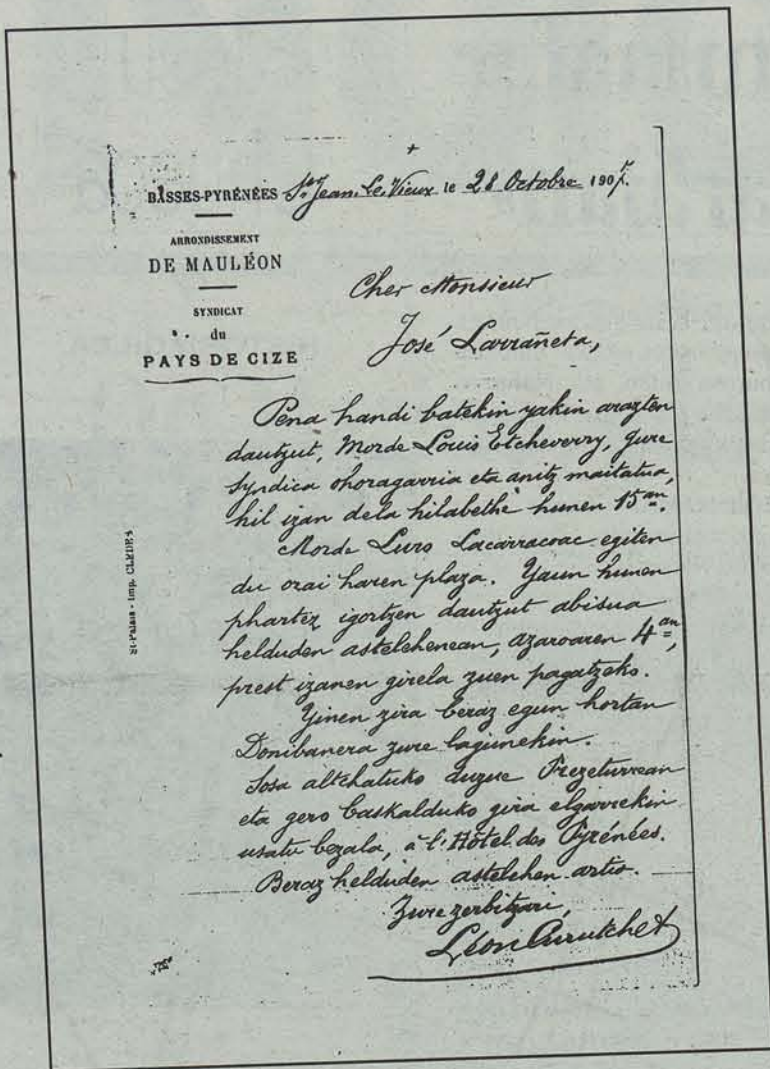 BASSES-PYRÉNÉES St Jean-Le-Vieux le 28 Octobre 1907.
ARRONDISSEMENT
DE MAULÉON
SYNDICAT
du
PAYS DE CIZE
Cher Monsieur
José Larrañeta,
Pena handi batekin yakin arazten
dautzut, Morde Louis Etcheverry, gure
syndica ohoragarria eta anitz maitatua,
hil izan dela hilabethe hunen 15an.
Morde Luro Lacarracoac egiten
du orai haren plaza. Yaun hunen
phartez igortzen dautzut abisua
helduden astelehenean, azaroaren 4an,
prest izanen girela zuen pagatzeko.
Yinen zira beraz egun hortan
Donibanera zure lagunekin.
Sosa altchatuko duzue Prezeturrean
eta gero baskalduko gira elgarrekin
usatu bezala, à l'Hôtel des Pyrénées.
Beraz helduden astelehen artio.
Zure zerbitzari,
Léon Curutchet
St-Palais - Imp. CLEDES